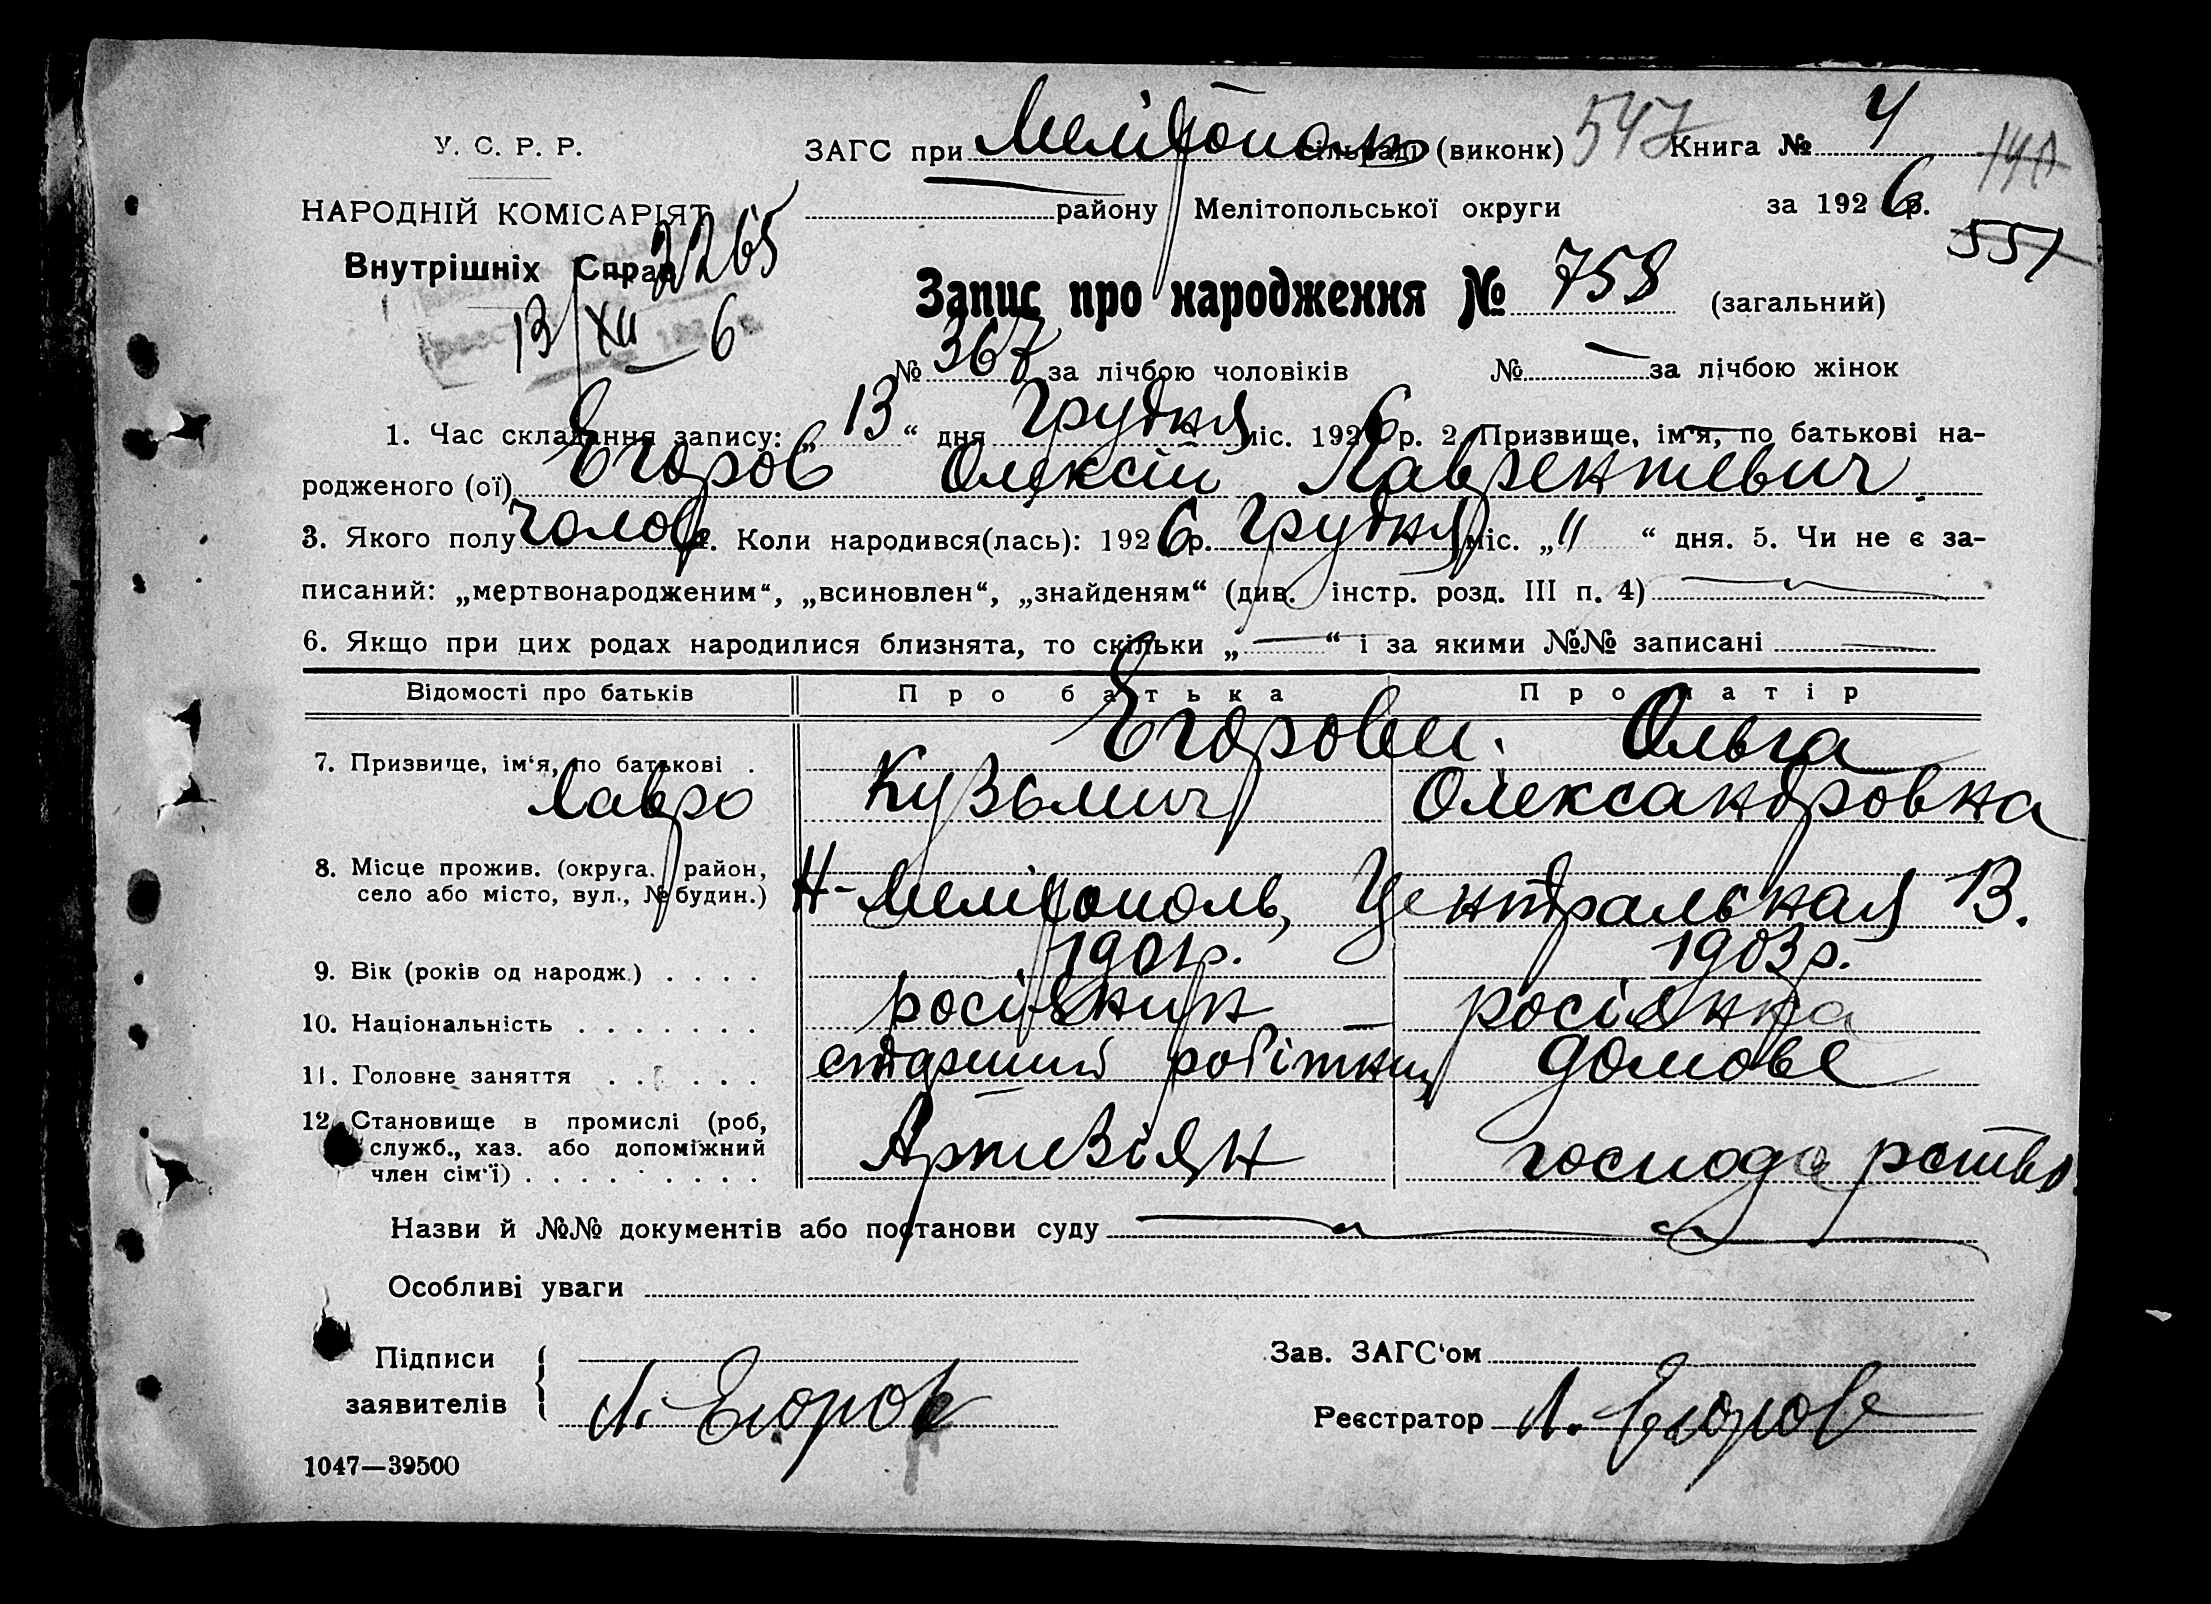 У. С. Р. Р.
ЗАГС при Мелітополь сільраді (виконк) 547 Книга № 4
140
НАРОДНІЙ КОМІСАРІЯТ района району Мелітопольської округи за 1926 р.
551
Внутрішніх Справ 2265
13/XII 6
Запис про народження № 758 (загальний)
№ 367 за лічбою чоловіків № — за лічбою жінок
1. Час складання запису: „ 13 “ дня Грудня міс. 1926 р. 2. Призвище, ім'я, по батькові на-
родженого (ої) Егоров Олексій Лаврентієвич
3. Якого полу чолов 4. Коли народився(лась): 1926 р. Грудня міс. „ 11 “ дня. 5. Чи не є за-
писаний: „мертвонародженим“, „всиновлен“, „знайденям“ (див. інстр. розд. III п. 4)
6. Якщо при цих родах народилися близнята, то скільки „ — “ і за якими №№ записані —
Відомості про батьків Про батька Про матір
7. Призвище, ім‘я, по батькові . Егорови. Ольга
Лавро Кузьмич Олександровна
8. Місце прожив. (округа, район,
село або місто, вул., № будин.) Н-Мелітополь, Центральная 13.
9. Вік (років од народж.) . . . . 1901р. 1903р.
10. Національність . . . . . . . росіянин — росіянка
11. Головне заняття . . . . . . старший робітник домове
12. Становище в промислі (роб,
служб., хаз. або допоміжний
член сім‘ї) . . . . . . . . Артизіян господарство
Назви й №№ документів або постанови суду
Особливі уваги
Підписи Зав. ЗАГС‘ом
заявителів Л. Егоров Реєстратор Л. Егоров
1047—39500